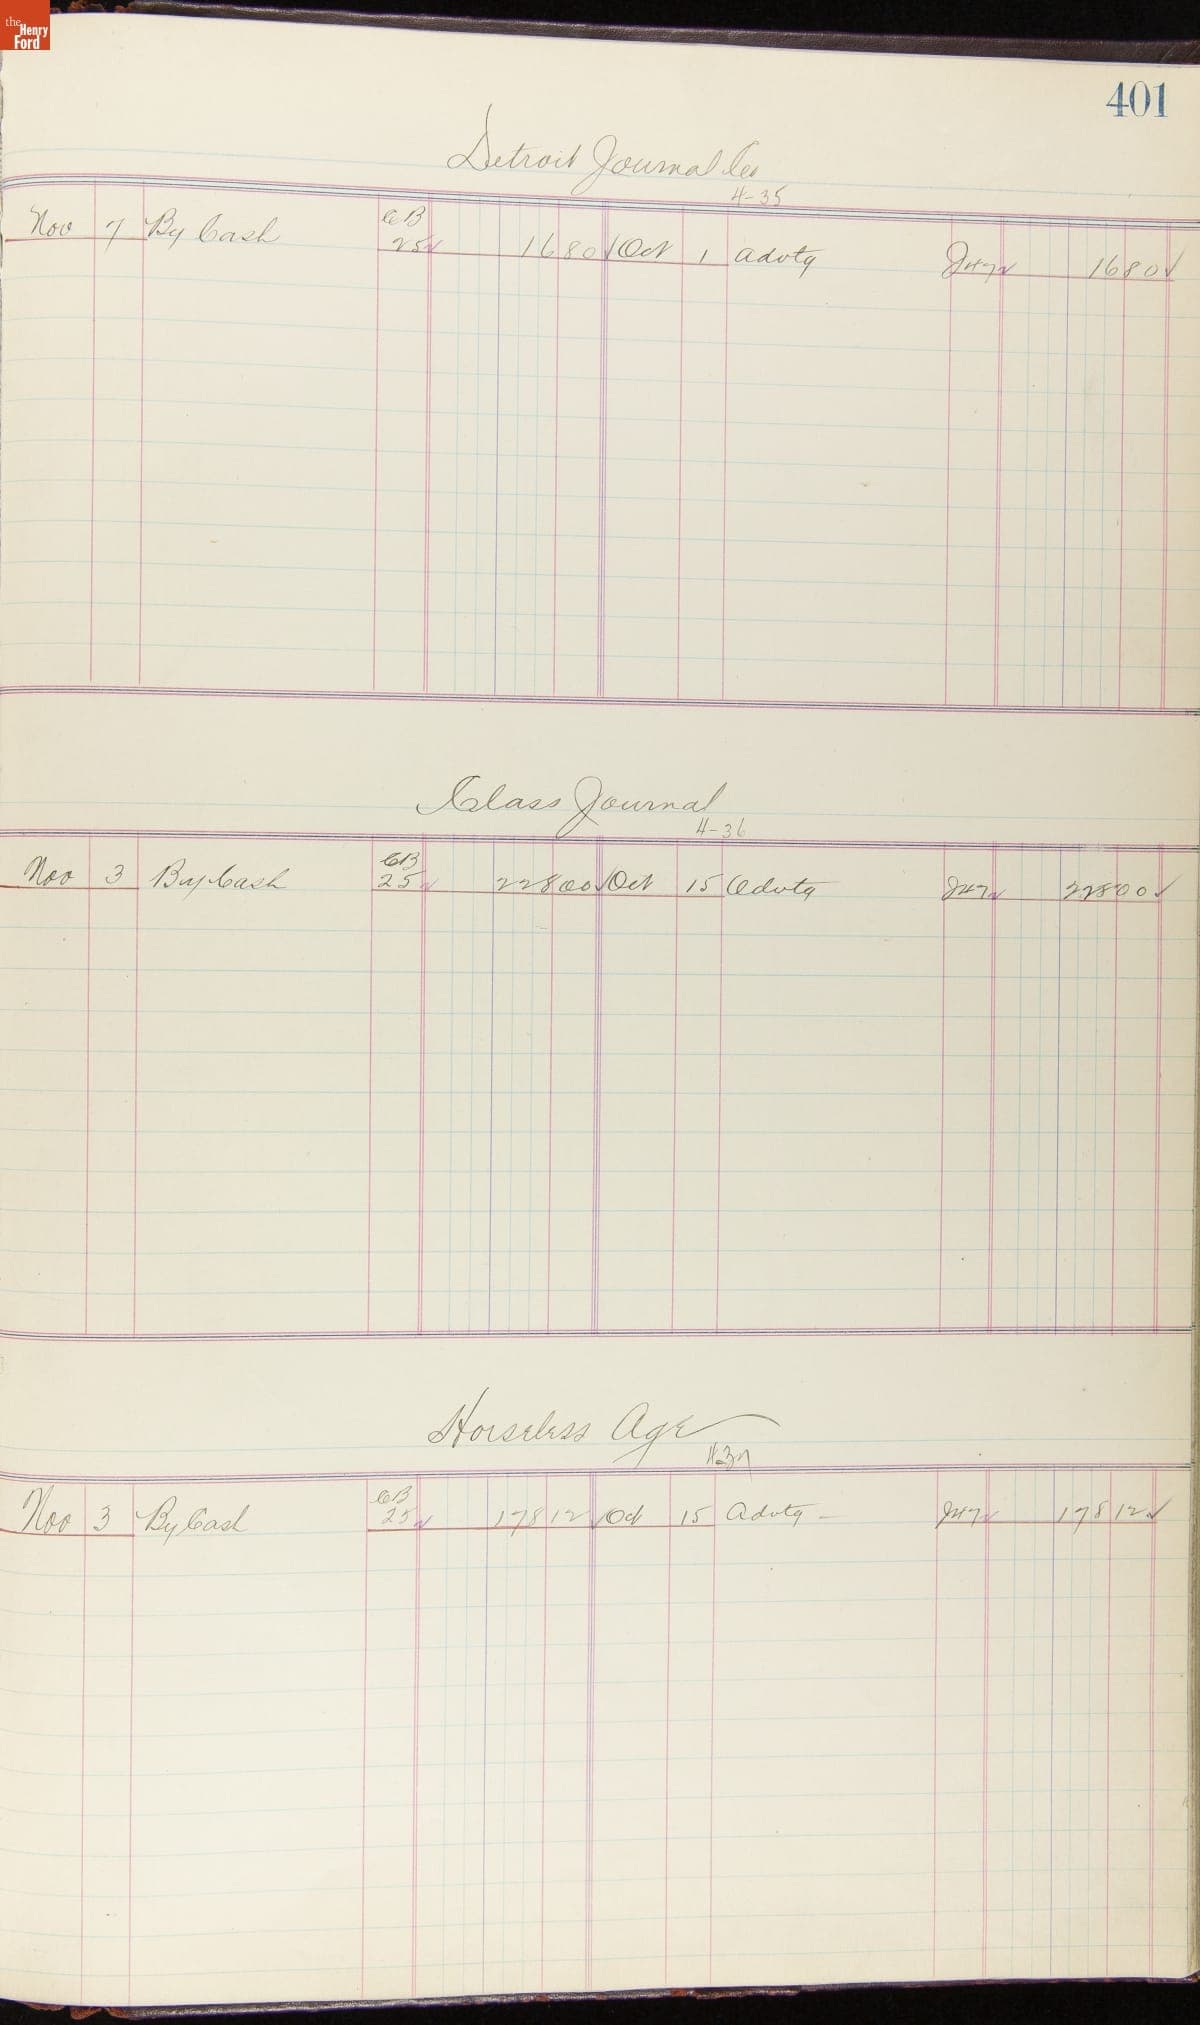 the
Henry
Ford
401
Detroit Journal Co
4-35
CB
Nov 7 By Cash 25✓ 16 80✓ Oct 1 Advtg J47✓ 16 80✓
Class Journal
4-36
CB
Nov 3 By Cash 25✓ 228 00✓ Oct 15 Advtg J47✓ 228 00✓
Horseless Age
437
CB
Nov 3 By Cash 25✓ 178 12✓ Oct 15 Advtg – J47✓ 178 12✓